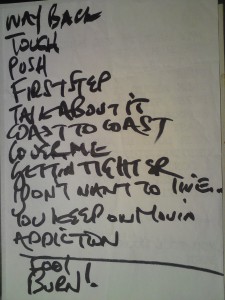 WAY BACK
TOUCH
PUSH
FIRST STEP
TALK ABOUT IT
COAST TO COAST
COVER ME
GETTIN TIGHTER
I DON'T WANT TO LIVE..
YOU KEEP ON MOVIN
ADDICTION
BURN!